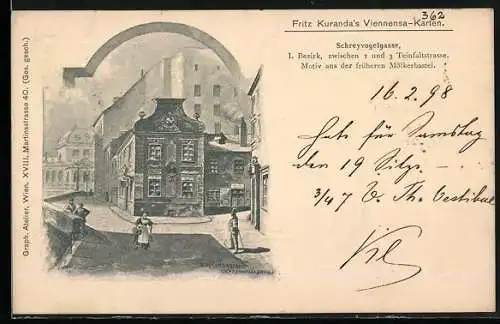 Fritz Kuranda's Viennensa-Karten.
362
Schreyvogelgasse,
I. Bezirk, zwischen 1 und 3 Teinfaltstrasse.
Motiv aus der früheren Mölkerbastei.
16.2.98
Habe für Samstag
den 19 Sitze
3/4 7 Th. Vestibul
Graph. Atelier, Wien, XVIII, Martinsstrasse 40. (Ges. gesch.)